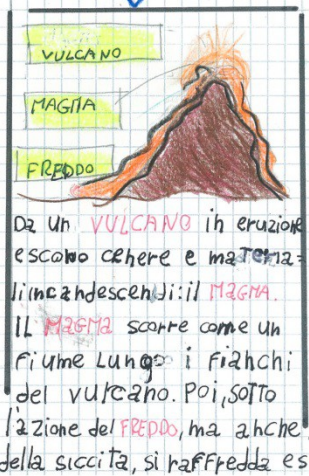 VULCANO
MAGMA
FREDDO
Da un VULCANO in eruzione
escono cenere e materia=
li incandescenti: il MAGMA.
IL MAGMA scorre come un
fiume lungo i fianchi
del vulcano. Poi, sotto
l'azione del FREDDO, ma anche
della siccita, si raffredda e s